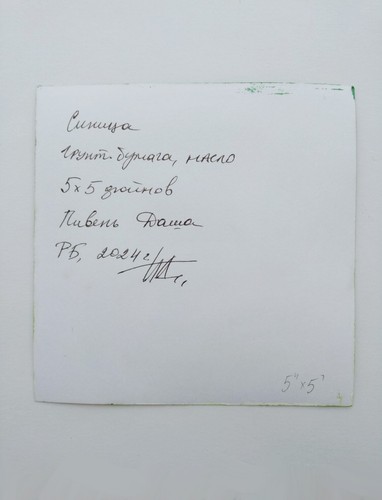 Синица
Грунт. бумага, масло
5x5 дюймов
Пивень Даша
РБ, 2024 г.
5" x 5"